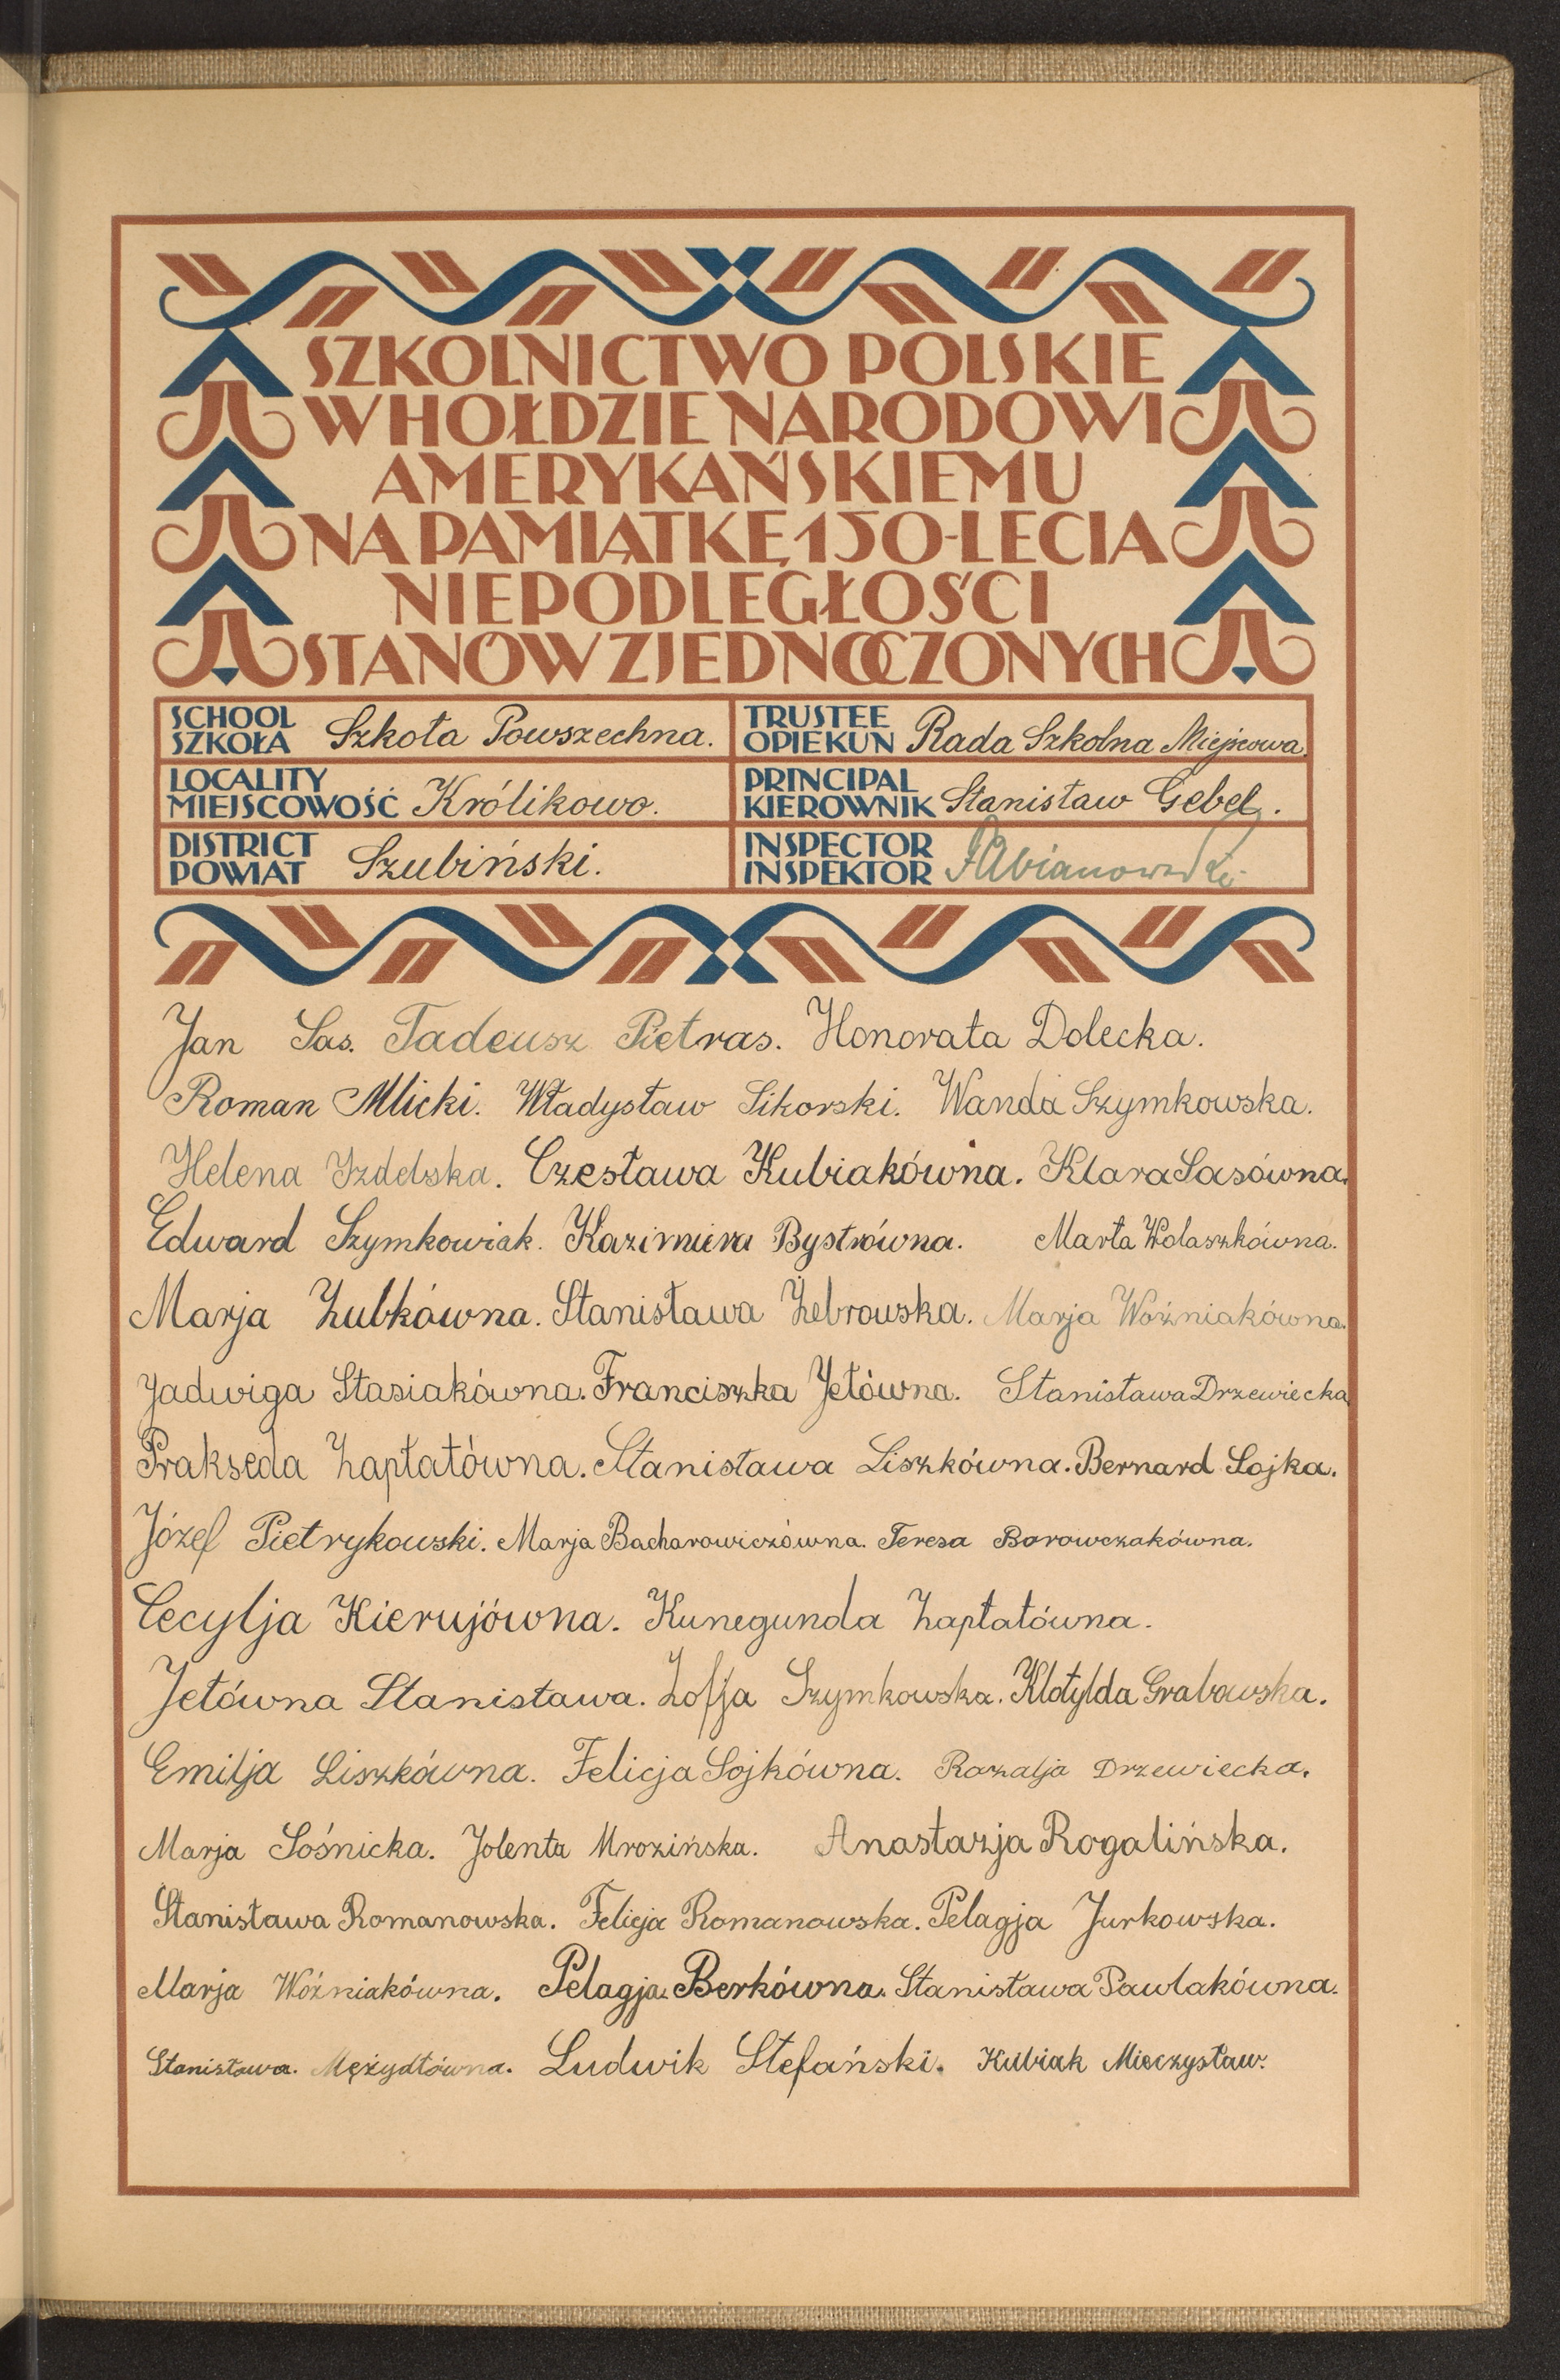 SZKOLNICTWO POLSKIE
W HOŁDZIE NARODOWI
AMERYKAŃSKIEMU
NA PAMIĄTKĘ 150-LECIA
NIEPODLEGŁOŚCI
STANÓW ZJEDNOCZONYCH
SCHOOL
SZKOŁA Szkoła Powszechna.
TRUSTEE
OPIEKUN Rada Szkolna Miejscowa.
LOCALITY
MIEJSCOWOŚĆ Królikowo.
PRINCIPAL
KIEROWNIK Stanisław Gebel.
DISTRICT
POWIAT Szubiński.
INSPECTOR
INSPEKTOR
Jan Sas. Tadeusz Pietras. Honorata Dolecka.
Roman Mlicki. Władysław Sikorski. Wanda Szymkowska.
Helena Izdebska. Czesława Kubiakówna. Klara Sasówna.
Edward Szymkowiak. Kazimiera Bystrówna. Marta Wolaszkówna.
Marja Zubkówna. Stanisława Żebrowska. Marja Woźniakówna.
Jadwiga Stasiakówna. Franciszka Jetówna. Stanisława Drzewiecka
Prakseda Zapłatówna. Stanisława Liszkówna. Bernard Sojka.
Józef Pietrykowski. Marja Bacharowiczówna. Teresa Borowczakówna.
Cecylja Kierujówna. Kunegunda Zapłatówna.
Jetówna Stanisława. Zofja Szymkowska. Klotylda Grabowska.
Emilja Liszkówna. Felicja Sojkówna. Rozalja Drzewiecka.
Marja Sośnicka. Jolenta Mrozińska. Anastazja Rogalińska.
Stanisława Romanowska. Felicja Romanowska. Pelagja Jurkowska.
Marja Woźniakówna. Pelagja. Berkówna. Stanisława Pawlakówna.
Stanisława. Mężydłówna. Ludwik Stefański. Kubiak Mieczysław.